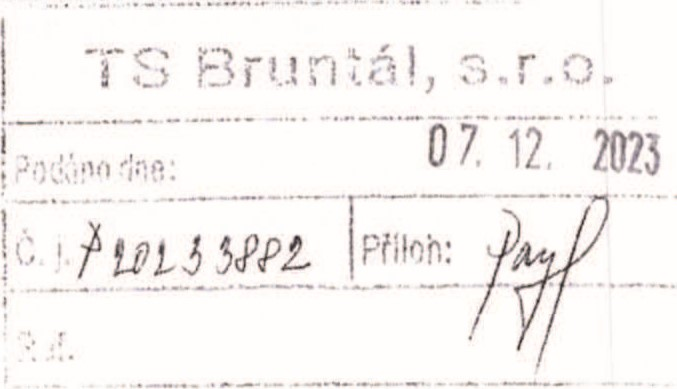 TS Bruntál, s.r.o.
Podáno dne: 07. 12. 2023
Č. j. P20233882 Příloh: